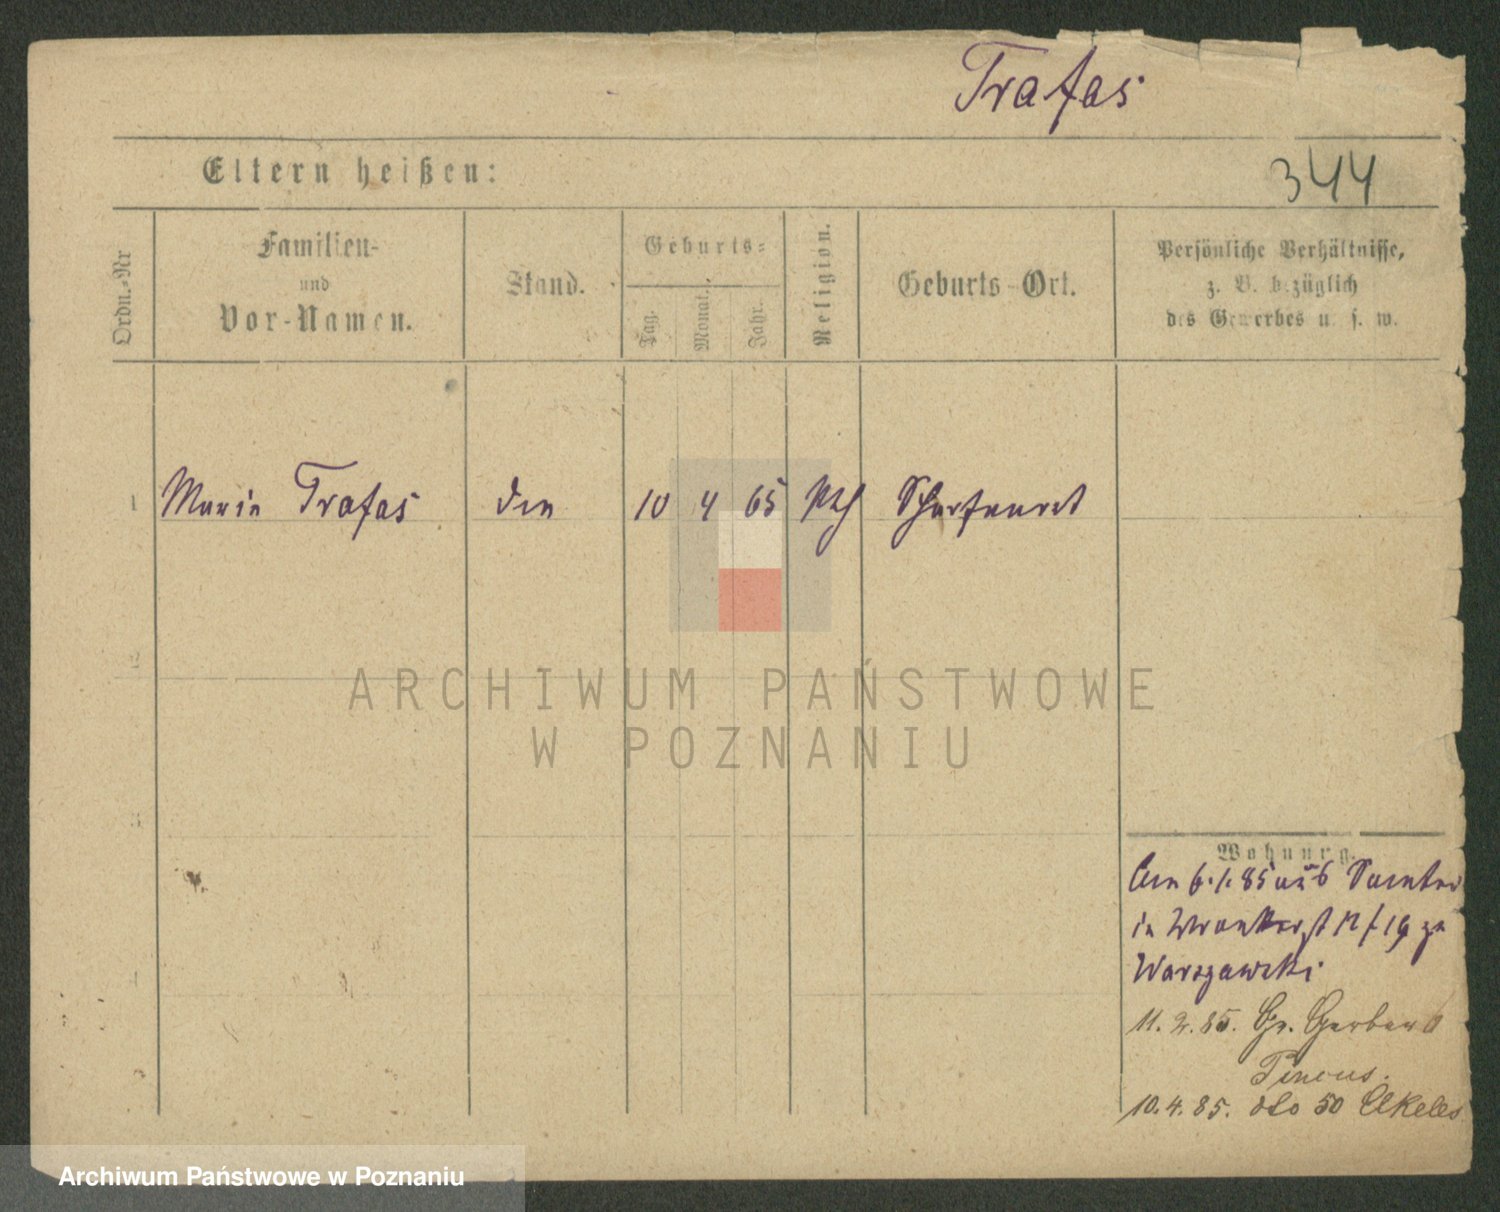 Trafas
Eltern heißen:
344
Ordn.-Nr
Familien-
und
Vor-Namen.
Stand.
Geburts-
Tag.
Monat.
Jahr.
Religion.
Geburts-Ort.
Persönliche Verhältnisse,
z. B. bezüglich
des Gewerbes u. s. w.
1 Marie Trafas 10 4 65 Kth
2
3
4
5
Wohnung.
6.1.85 aus Samter
in Wronkerst 17/19 zu
Warszawski
11.2.85. Gr. Gerber
Pincus.
10.4.85. dto 50 Akeles
ARCHIWUM PAŃSTWOWE
W POZNANIU
Archiwum Państwowe w Poznaniu